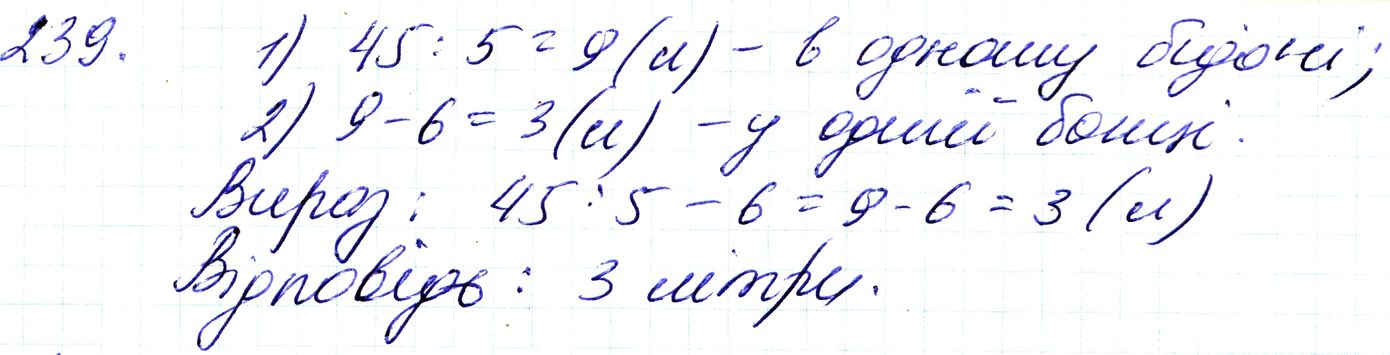 239. 1) 45 : 5 = 9 (л) – в одному бідоні;
2) 9 – 6 = 3 (л) – у одній банці.
Вираз: 45 : 5 – 6 = 9 - 6 = 3 (л)
Відповідь: 3 літри.